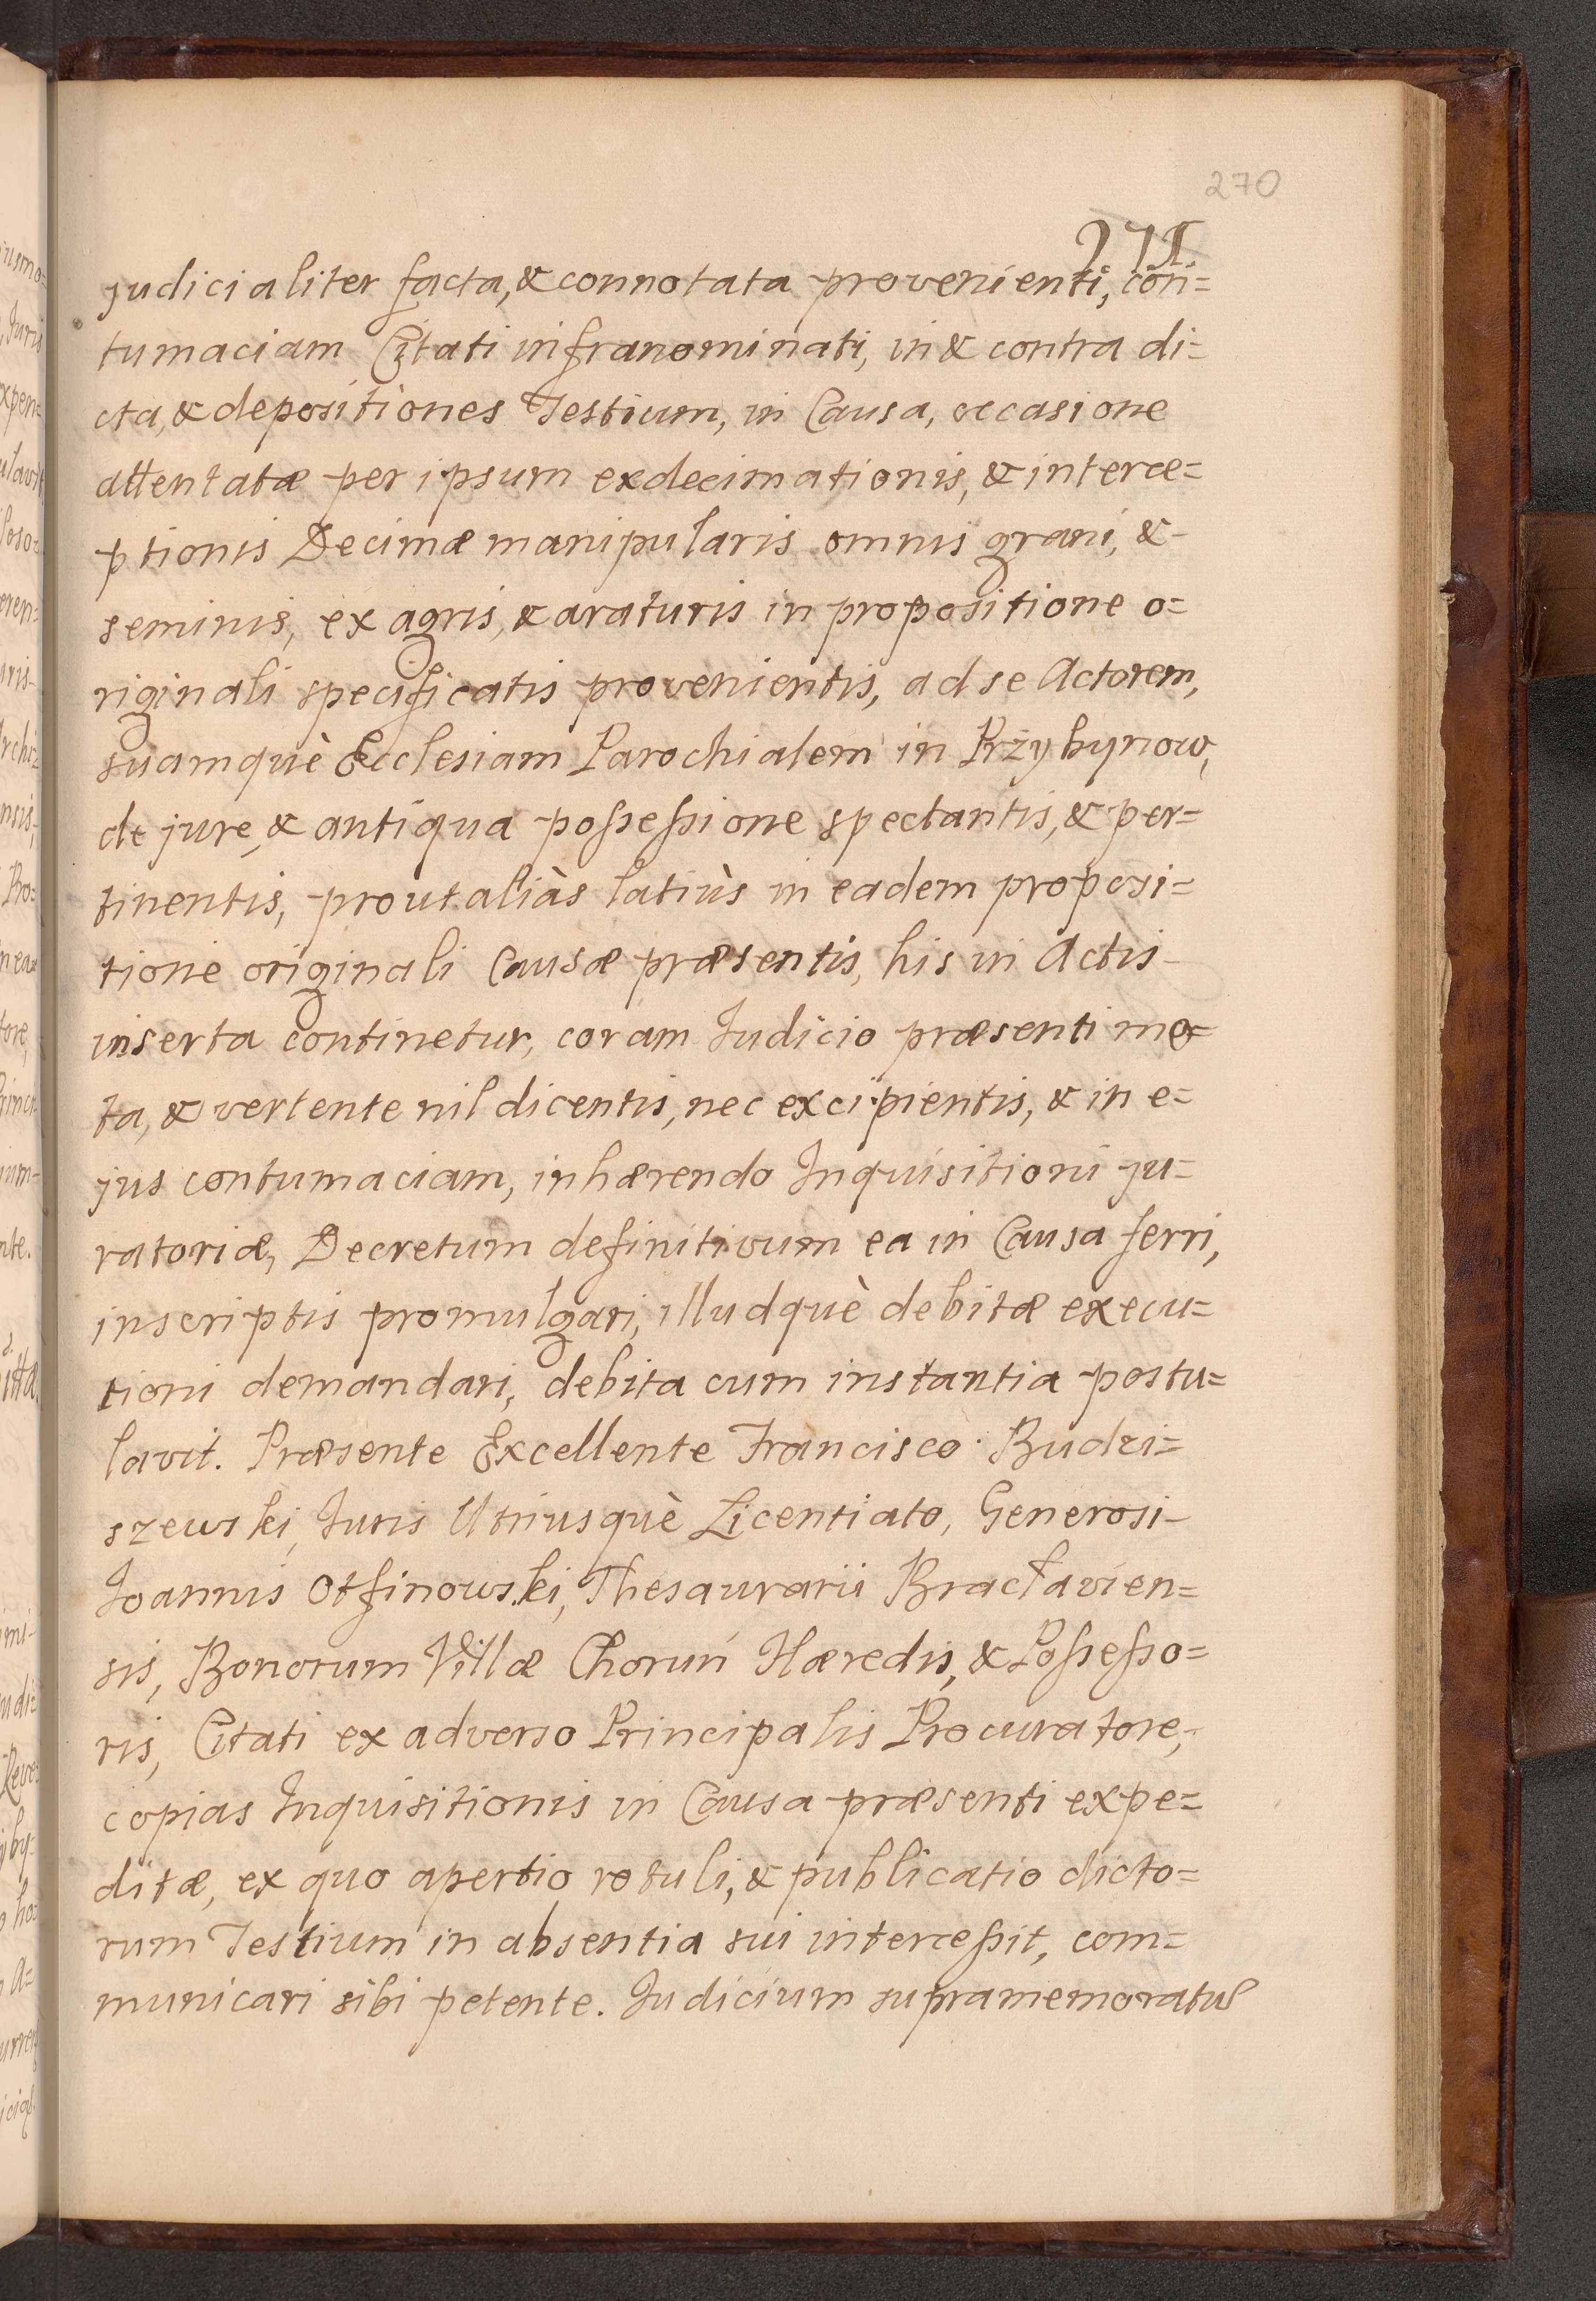 270
271.
judicialiter facta, & connotata provenienti, con=
tumaciam Citati infranominati, in & contra di=
cta, & depositiones Testium, in Causa, occasione
attentatæ per ipsum exdecimationis, & interce=
ptionis Decimæ manipularis omnis grani, &
seminis, ex agris, & araturis in propositione o=
riginali specificatis provenientis, ad se Actorem,
suamquè Ecclesiam Parochialem in Przybynow,
de jure, & antiqua possessione spectantis, & per=
tinentis, prout aliàs latiùs in eadem proposi=
tione originali Causæ præsentis, his in Actis
inserta continetur, coram Judicio præsenti mo=
ta, & vertente nil dicentis, nec excipientis, & in e=
jus contumaciam, inhærendo Inquisitioni ju=
ratoriæ, Decretum definitivum ea in Causa ferri,
inscriptis promulgari, illudquè debitæ execu=
tioni demandari, debita cum instantia postu=
lavit. Præsente Excellente Francisco Budzi=
szewski, Juris Utriusquè Licentiato, Generosi
Joannis Otfinowski, Thesaurarii Bractavien=
sis, Bonorum Villæ Choruń Hæredis, & Possesso=
ris, Citati ex adverso Principalis Procuratore,
copias Inquisitionis in Causa præsenti expe=
ditæ, ex quo apertio rotuli, & publicatio dicto=
rum Testium in absentia sui intercessit, com=
municari sibi petente. Judicium supramemoratus